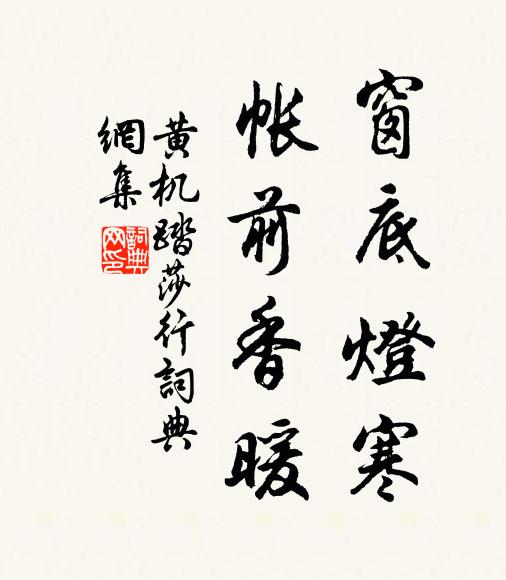 窗底燈寒
帳前香暖
黄机踏莎行詞典
網集
詞典
网印